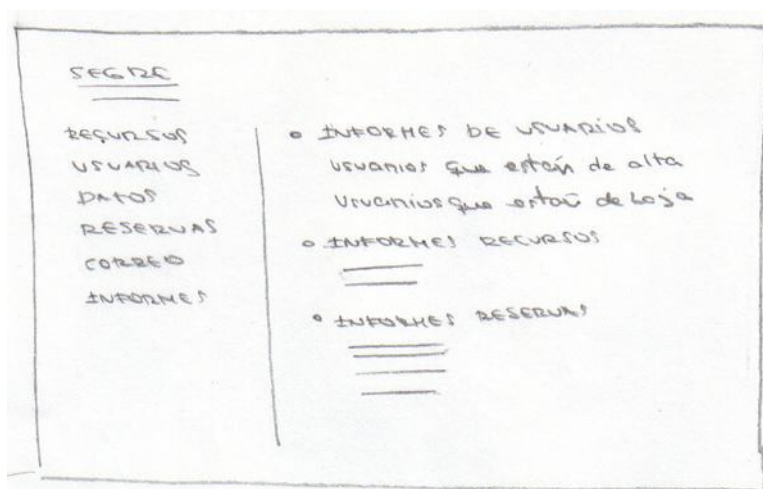 SEGRE
RECURSOS
USUARIOS
DATOS
RESERVAS
CORREO
INFORMES
• INFORMES DE USUARIOS
Usuarios que están de alta
Usuarios que están de baja
• INFORMES RECURSOS
• INFORMES RESERVAS